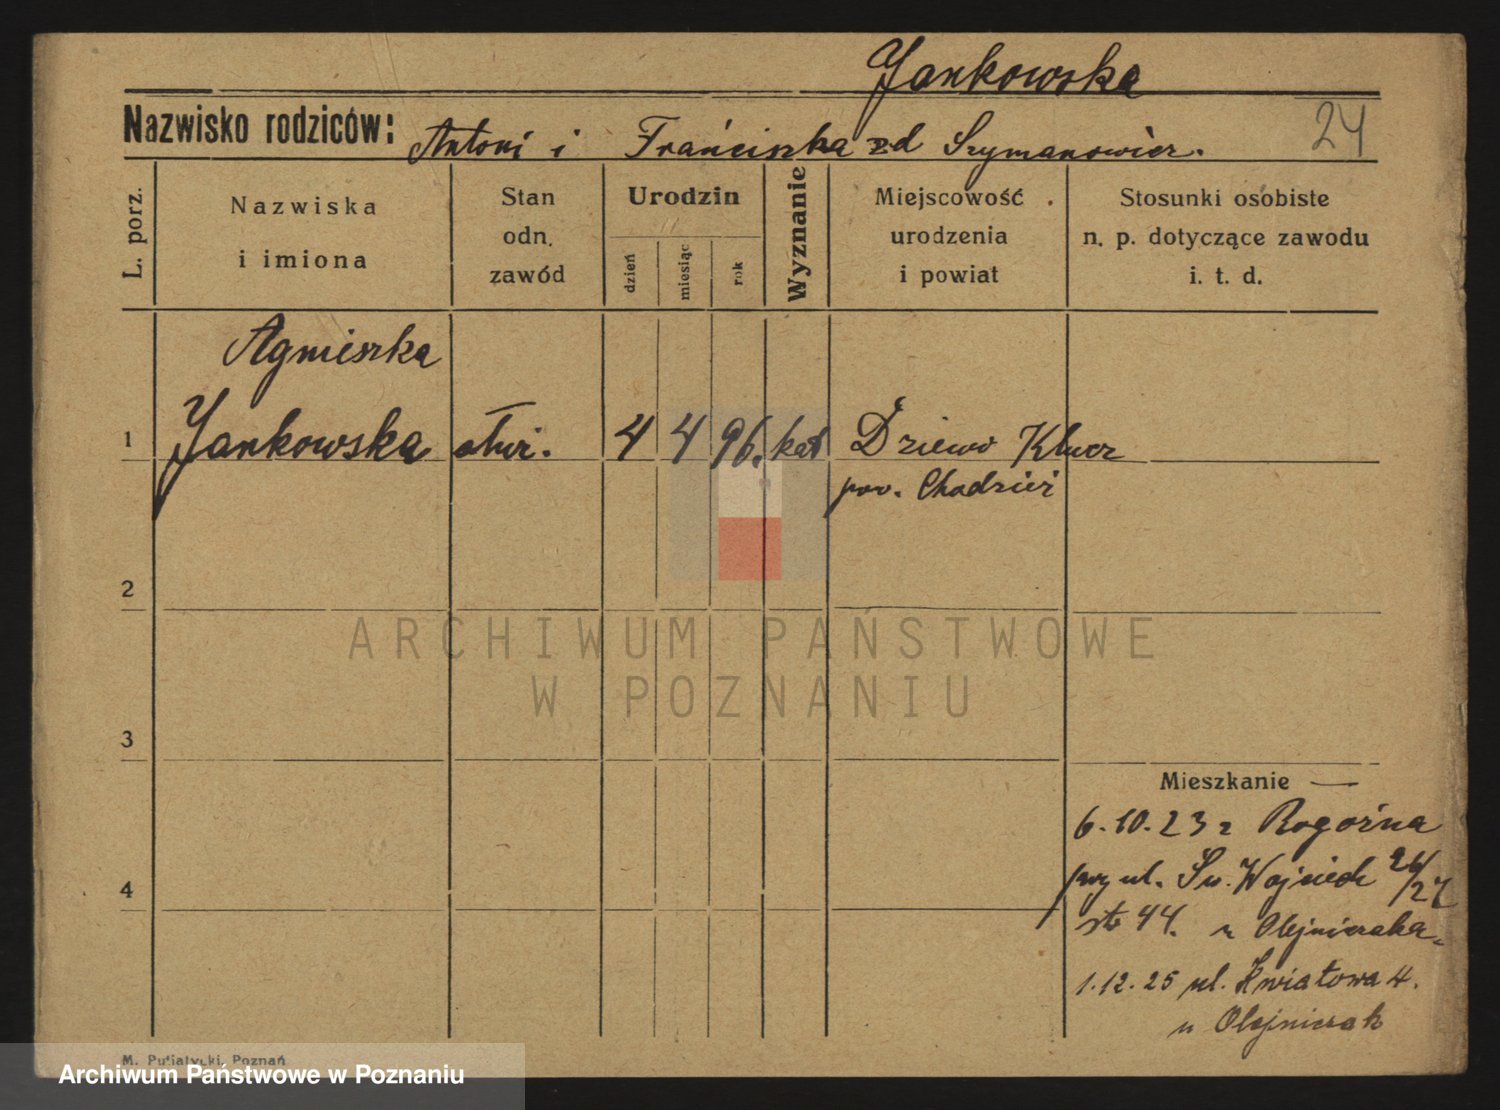 Jankowska
Nazwisko rodziców: Antoni i Franciszka zd Szymanowicz.
24
L. porz.
Nazwiska
i imiona
Stan
odn.
zawód
Urodzin
dzień
miesiąc
rok
Wyznanie
Miejscowość
urodzenia
i powiat
Stosunki osobiste
n. p. dotyczące zawodu
i. t. d.
Agnieszka
1 Jankowska 4 4 96. kat Dziewo Klucz
pow. Chodzież
2
ARCHIWUM PAŃSTWOWE
W POZNANIU
3
Mieszkanie
6.10.23 z Rogoźna
przy ul. Św. Wojciech 26/27
4
str 44. u Olejniczaka.
1.12.25 ul. Kwiatowa 4.
u Olejniczak
M. Putiatycki, Poznań
Archiwum Państwowe w Poznaniu